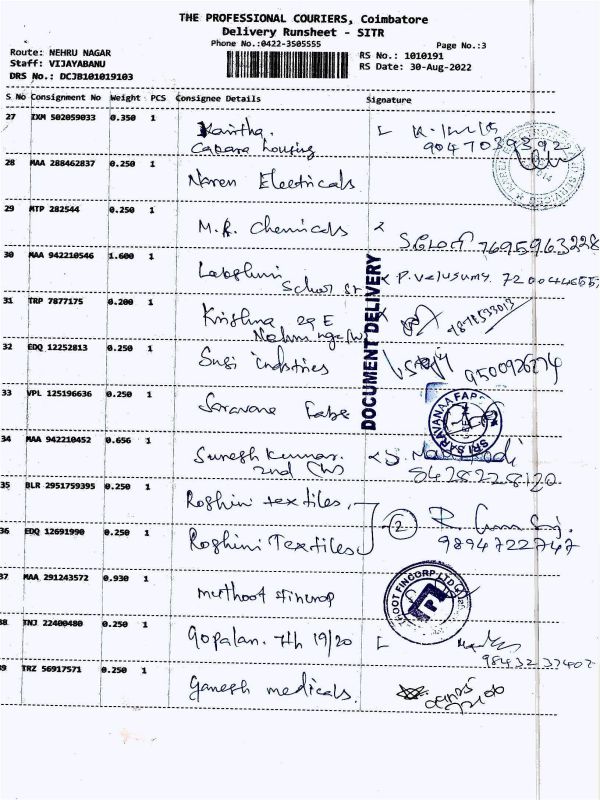 THE PROFESSIONAL COURIERS, Coimbatore
Delivery Runsheet - SITR
Phone No.:0422-3505555
Page No.:3
Route: NEHRU NAGAR
Staff: VIJAYABANU
DRS No.: DCJB101019103
RS No.: 1010191
RS Date: 30-Aug-2022
S No Consignment No Weight PCS Consignee Details Signature
27 IXM 502059033 0.350 1
housing 9047039392
28 MAA 288462837 0.250 1
Naren Electricals
29 MTP 282544 0.250 1
M.R. Chemicals
7695963228
30 MAA 942210546 1.600 1
Lakshmi
School st P. Velusamy
31 TRP 7877175 0.200 1
Krishna 29 E
32 EDQ 12252813 0.250 1
Susi industries
33 VPL 125196636 0.250 1
Saravana Fabs
SRI SARAVANAA FABS
34 MAA 942210452 0.656 1
Suresh Kumar.
2nd 8428228120
35 BLR 2951759395 0.250 1
Roshini textiles.
36 EDQ 12691990 0.250 1
Roshini Textiles 2
9894722747
37 MAA 291243572 0.930 1
Muthoot fincorp
MUTHOOT FINCORP LTD
38 TNJ 22400480 0.250 1
Gopalan. 7th 19/20
39 TRZ 56917571 0.250 1
Ganesh medicals.
DOCUMENT DELIVERY